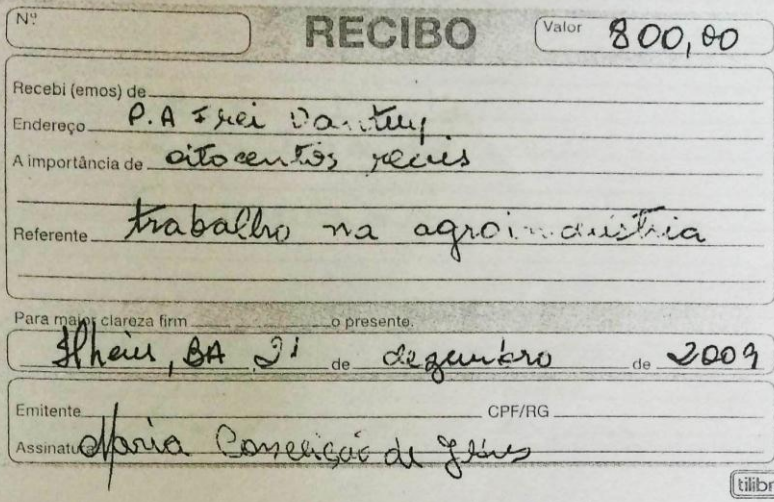 Nº RECIBO Valor 800,00
Recebi (emos) de
Endereço P.A Frei Vantuy
A importância de oitocentos reais
Referente trabalho na agroindústria
Para maior clareza firm o presente.
Ilhéus, BA 21 de dezembro de 2009
Emitente CPF/RG
Assinatura Maria Conceição de Jesus
tilibr